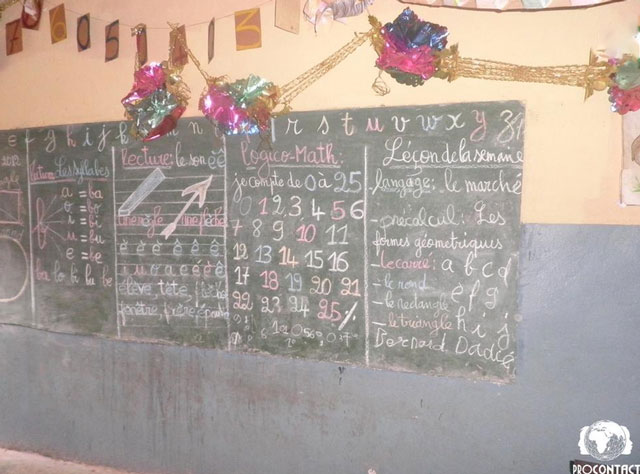 7 6 0 5 1 3
g h i j k m n r s t u v w x y z
Les syllabes
a = ba
i = bi
u = bu
e = be
ba bo bi bu be
lecture: le son ê è
une règle
è è è ê ê ê
i u o a e é è ê
élève, tête,
fenêtre, père,
logico-Math:
je compte de 0 à 25
0 1 2 3 4 5 6
7 8 9 10 11
12 13 14 15 16
17 18 19 20 21
22 23 24 25
Léçon de la semaine
langage: le marché
- précalcul: Les
formes géometriques
- le carré: a b c d
- le rond e f g
- le rectangle
- le triangle h i j
Bernard Dadié
PROCONTACT